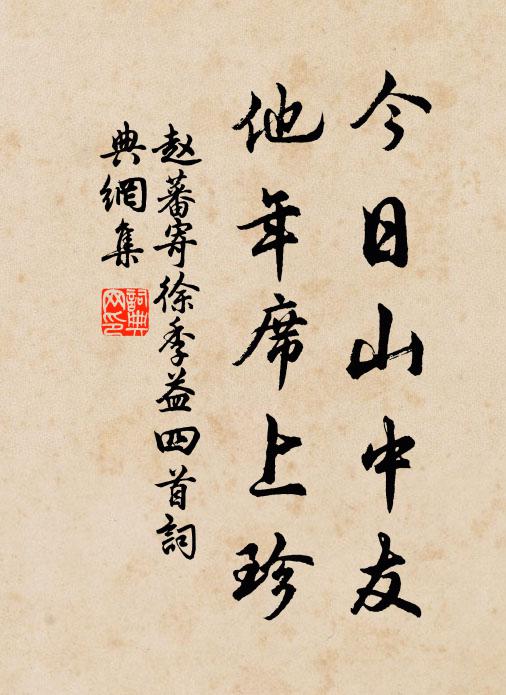 今日山中友
他年席上珍
赵蕃寄徐季益四首詞
典網集
詞典
网印